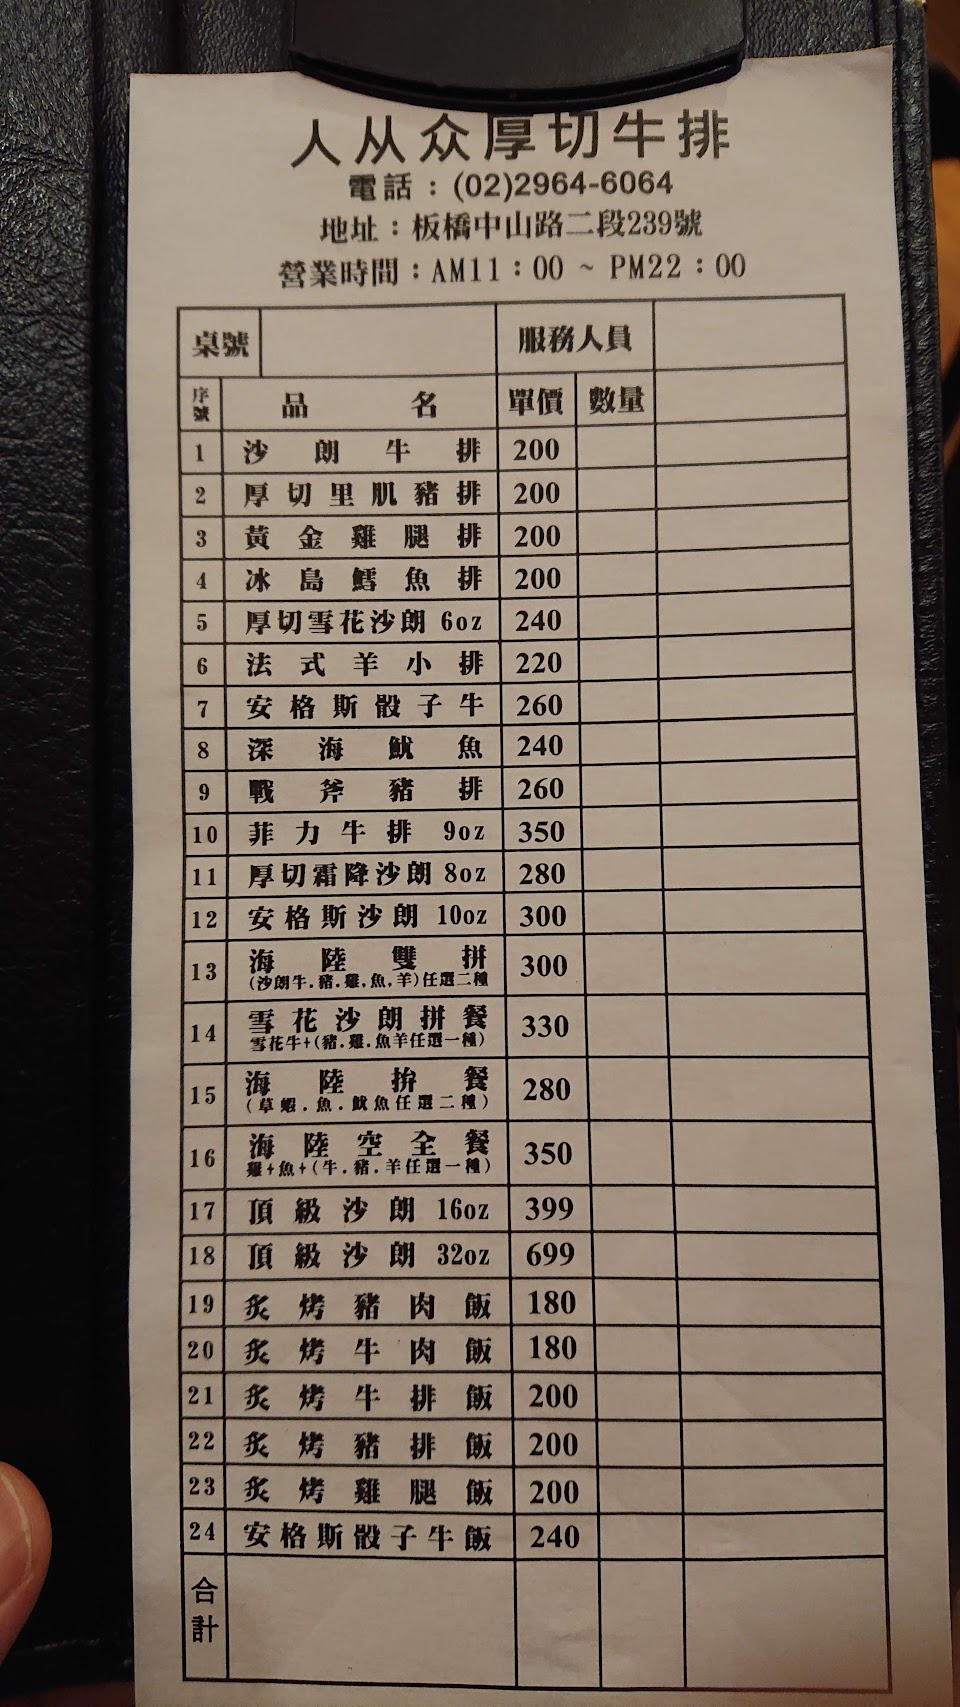 人从众厚切牛排
電話：(02)2964-6064
地址：板橋中山路二段239號
營業時間：AM11：00 ~ PM22：00
桌號 服務人員
序號 品名 單價 數量
1 沙朗牛排 200
2 厚切里肌豬排 200
3 黃金雞腿排 200
4 冰島鱈魚排 200
5 厚切雪花沙朗 6oz 240
6 法式羊小排 220
7 安格斯骰子牛 260
8 深海魷魚 240
9 戰斧豬排 260
10 菲力牛排 9oz 350
11 厚切霜降沙朗 8oz 280
12 安格斯沙朗 10oz 300
13 海陸雙拼 300
(沙朗牛.豬.雞.魚.羊)任選二種
14 雪花沙朗拼餐 330
雪花牛+(豬.雞.魚羊任選一種)
15 海陸拚餐 280
(草蝦.魚.魷魚任選二種)
16 海陸空全餐 350
雞+魚+(牛.豬.羊任選一種)
17 頂級沙朗 16oz 399
18 頂級沙朗 32oz 699
19 炙烤豬肉飯 180
20 炙烤牛肉飯 180
21 炙烤牛排飯 200
22 炙烤豬排飯 200
23 炙烤雞腿飯 200
24 安格斯骰子牛飯 240
合計